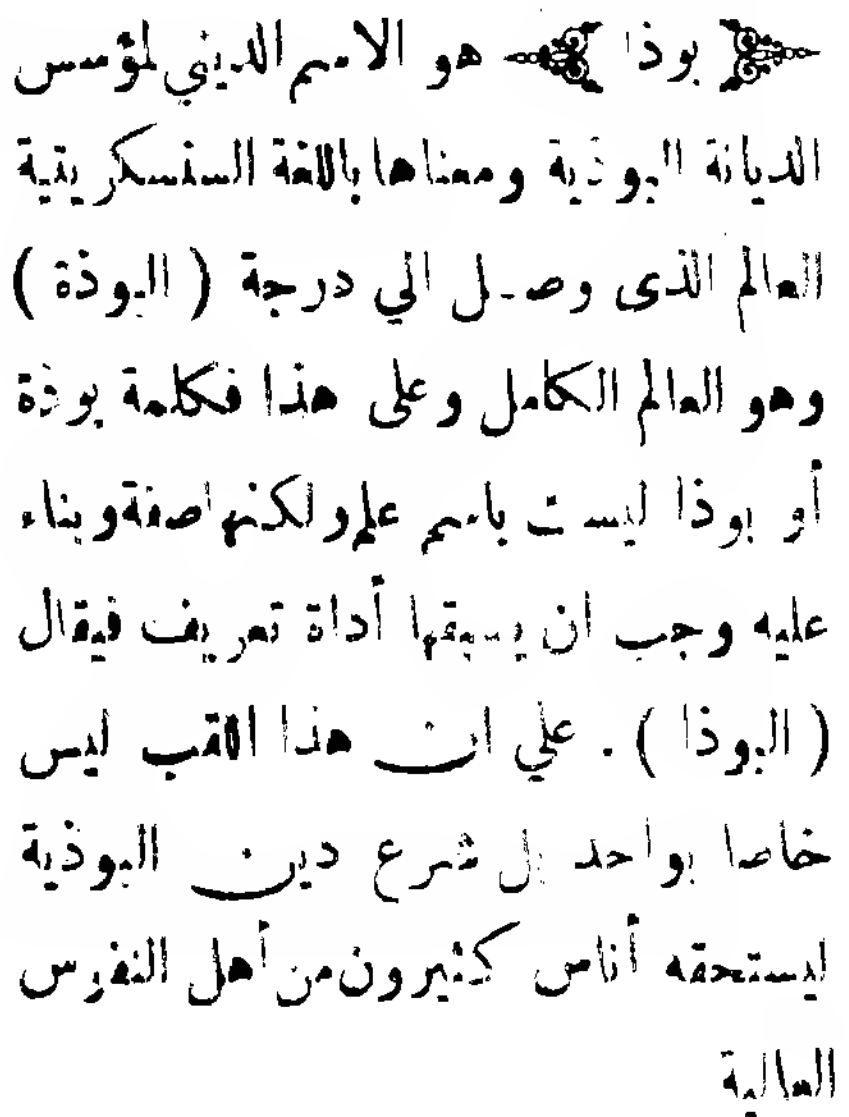 ﴿ بوذا ﴾ هو الاسم الديني لمؤسس
الديانة البوذية ومعناها باللغة السنسكريتية
العالم الذى وصل الي درجة ( البوذة )
وهو العالم الكامل وعلى هذا فكلمة بوذة
أو بوذا ليست باسم علم ولكنها صفة وبناء
عليه وجب ان يسبقها أداة تعريف فيقال
( البوذا ) . علي ان هذا اللقب ليس
خاصا بواحد بل شرع دين البوذية
ليستحقه أناس كثيرون من أهل النفوس
العالية